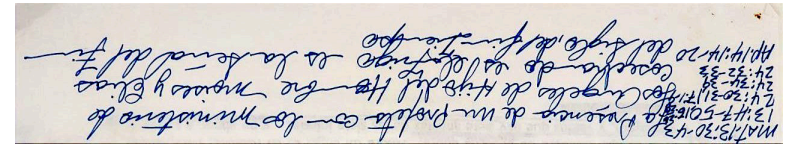 MAT:13:30-43
La Presencia de un Profeta con los ministerio de
13:47-50
los Angeles de Hijo del Hombre moises y Elias
24:30-31
24:32-33
cosechando es el trigo es la señal del Fin
AP:14:14-20 del siglo, del fin tiempo